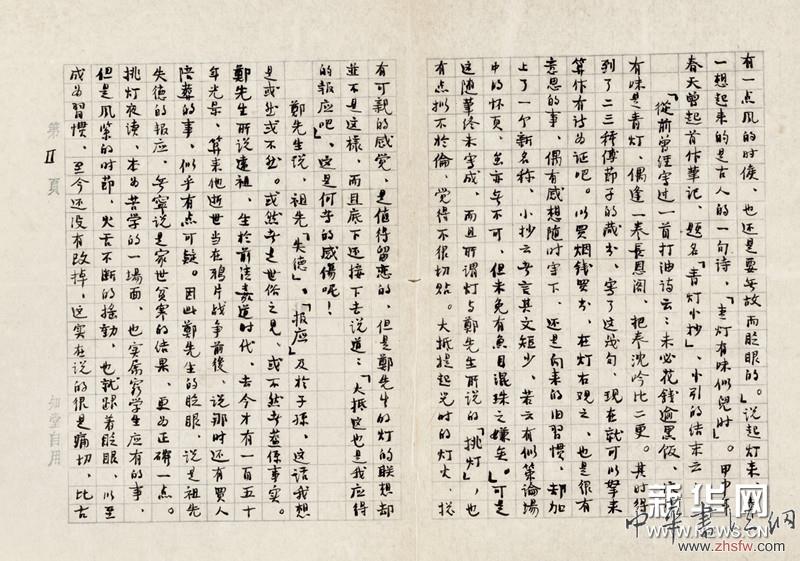 有一点风的时候，也还是要无故而眨眼的。」说起灯来，
一想起来的是古人的一句诗，「青灯有味似儿时」。甲申年
春天曾起首作笔记，题名「青灯小抄」，小引的结末云：
「從前曾经写过一首打油诗云：未必花錢逾黑饭，
有味是青灯，偶逢一巻長恩阁，把卷沈吟比二更。其时得
到了二三种傅节子的藏书，写了这几句，现在就可以拏来
算作有诗为证吧。以買烟錢買书，在灯右观之，也是很有
意思的事，偶有感想随时写下，还是向来的旧習惯，却加
上了一个新名称，小抄云者言其文短少，若云有似策論場
中的怀页，亦无不可，但未免有魚目混珠之嫌矣。」可是
这随筆终未写成，而且所谓灯与鄭先生所说的「挑灯」，也
有点拟不於倫，觉得不很切贴。大抵提起兒时的灯火，总
有可親的感觉，是值得留恋的，但是鄭先生的灯的联想却
並不是这樣，而且底下还接下去说道：「大抵这也是我应得
的报应吧。」这是何等的感傷呢！
鄭先生说，祖先「失德」，「报应」及於子孫，这话我想
是或然或不然。或然者是世俗之见，或不然者蓋係事实。
鄭先生所说遠祖，生於前清嘉道时代，去今才有一百五十
年光景，算来他逝世当在鴉片战事前後，说那时还有買人
陪葬的事，似乎有点可疑。因此鄭先生的眨眼，说是祖先
失德的报应，无寧说是家世貧寒的结果，更为正确一点。
挑灯夜读，本为苦学的一場面，也实属窮学生应有的事，
但是风緊的时節，火云不断的摇動，也就跟着眨眼，以至
成为習惯，至今还没有改掉，这实在说的很是痛切，比古
第 11 頁
知堂自用
新华网
WWW.NEWS.CN
中華書法網
www.zhsfw.com